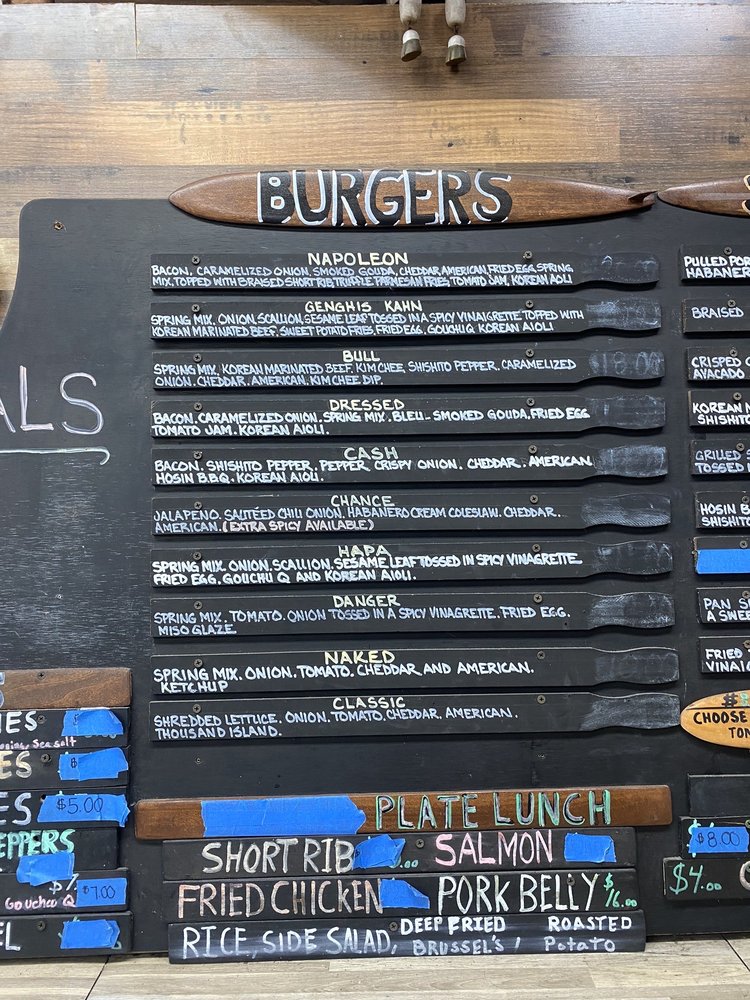 BURGERS
NAPOLEON
BACON. CARAMELIZED ONION. SMOKED GOUDA, CHEDDAR, AMERICAN, FRIED EGG, SPRING
MIX. TOPPED WITH BRAISED SHORT RIB, TRUFFLE PARMESAN FRIES, TOMATO JAM, KOREAN AIOLI
GENGHIS KAHN
SPRING MIX, ONION, SCALLION, SESAME LEAF TOSSED IN A SPICY VINAIGRETTE, TOPPED WITH
KOREAN MARINATED BEEF, SWEET POTATO FRIES, FRIED EGG, GOUCHU Q KOREAN AIOLI
BULL
$18.00
SPRING MIX, KOREAN MARINATED BEEF, KIM CHEE, SHISHITO PEPPER, CARAMELIZED
ONION. CHEDDAR. AMERICAN. KIM CHEE DIP.
DRESSED
BACON. CARAMELIZED ONION. SPRING MIX. BLEU. SMOKED GOUDA. FRIED EGG
TOMATO JAM. KOREAN AIOLI.
CASH
BACON. SHISHITO PEPPER. PEPPER CRISPY ONION. CHEDDAR. AMERICAN
HOSIN BBQ. KOREAN AIOLI.
CHANCE
JALAPENO. SAUTÉED CHILI ONION. HABANERO CREAM COLESLAW. CHEDDAR.
AMERICAN. (EXTRA SPICY AVAILABLE)
HAPA
SPRING MIX. ONION. SCALLION. SESAME LEAF TOSSED IN SPICY VINAGRETTE
FRIED EGG. GOUCHU Q AND KOREAN AIOLI.
DANGER
SPRING MIX. TOMATO. ONION TOSSED IN A SPICY VINAGRETTE. FRIED EGG.
MISO GLAZE
NAKED
SPRING MIX. ONION. TOMATO. CHEDDAR AND AMERICAN.
KETCHUP
CLASSIC
SHREDDED LETTUCE. ONION. TOMATO. CHEDDAR. AMERICAN.
THOUSAND ISLAND.
PLATE LUNCH
SHORT RIB .00 SALMON
FRIED CHICKEN PORK BELLY $16.00
RICE, SIDE SALAD, DEEP FRIED BRUSSEL'S, ROASTED POTATO
ALS
IES
Sea salt
ES
ES $5.00
EPPERS
GOUCHU Q $7.00
EL
PULLED POR
HABANER
BRAISED
CRISPED C
AVACADO
KOREAN M
SHISHITO
GRILLED S
TOSSED I
HOSIN B
SHISHIT
PAN S
A SWEE
FRIED
VINAIG
CHOOSE
TON
$8.00
$4.00